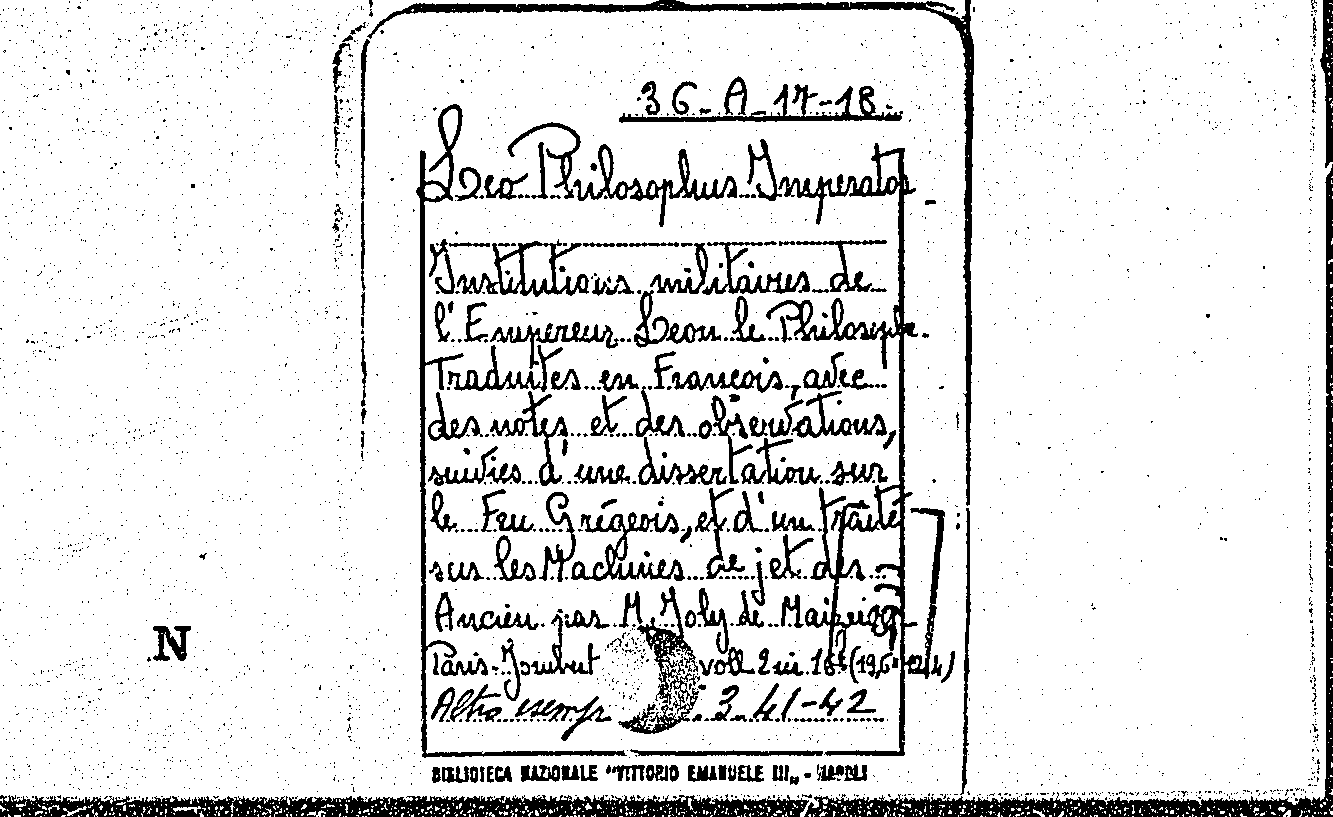 36-A-17-18.
Leo Philosophus Imperator
Institutions militaires de
l'Empereur Leon le Philosophe.
Traduites en François, avec
des notes et des observations,
suivies d'une dissertation sur
le Feu Grégeois, et d'un traité
sur les Machines de jet des
Ancien par M. Joly de
Paris-Jombert voll 2 in
Altro esemp 3-41-42
N
BIBLIOTECA NAZIONALE "VITTORIO EMANUELE III„ - NAPOLI